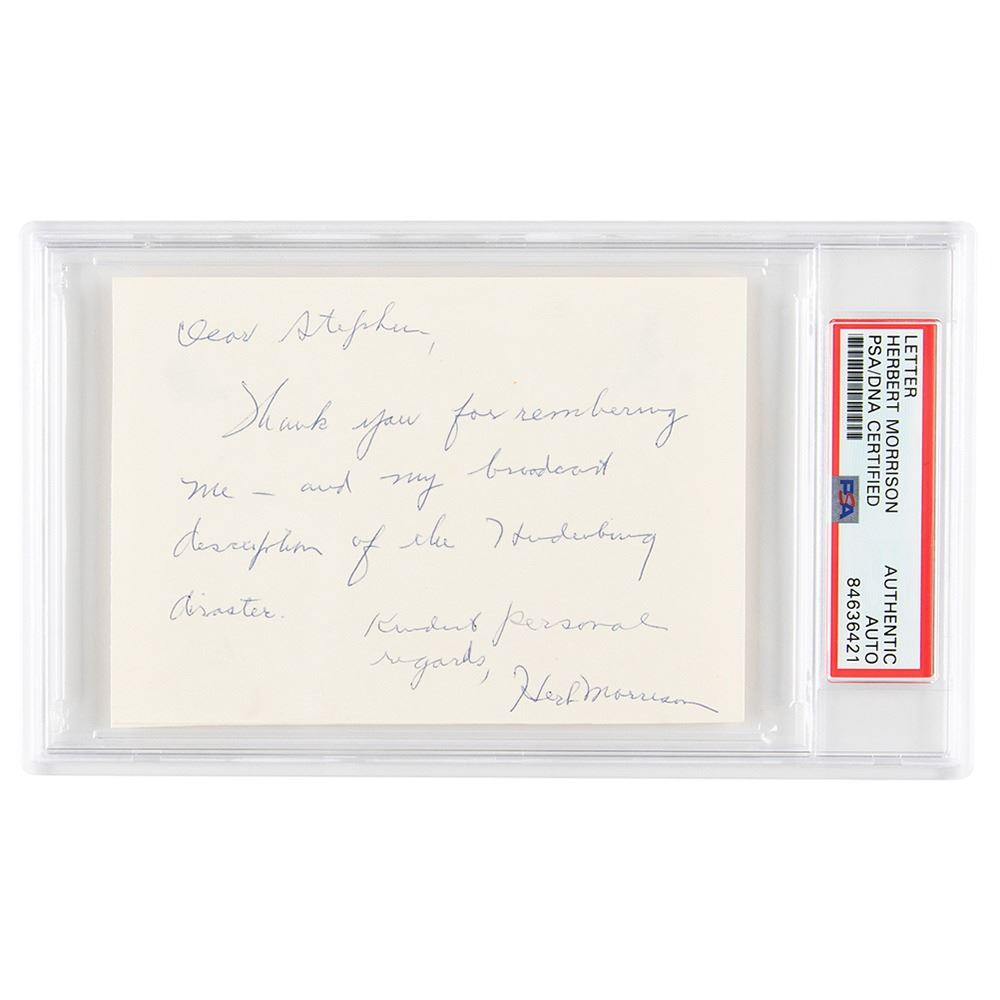 Dear Stephen,
Thank you for rembering
me — and my broadcast
description of the Hindenburg
disaster.
Kindest personal
regards,
Herb Morrison
LETTER
HERBERT MORRISON
PSA/DNA CERTIFIED
PSA
AUTHENTIC
AUTO
84636421